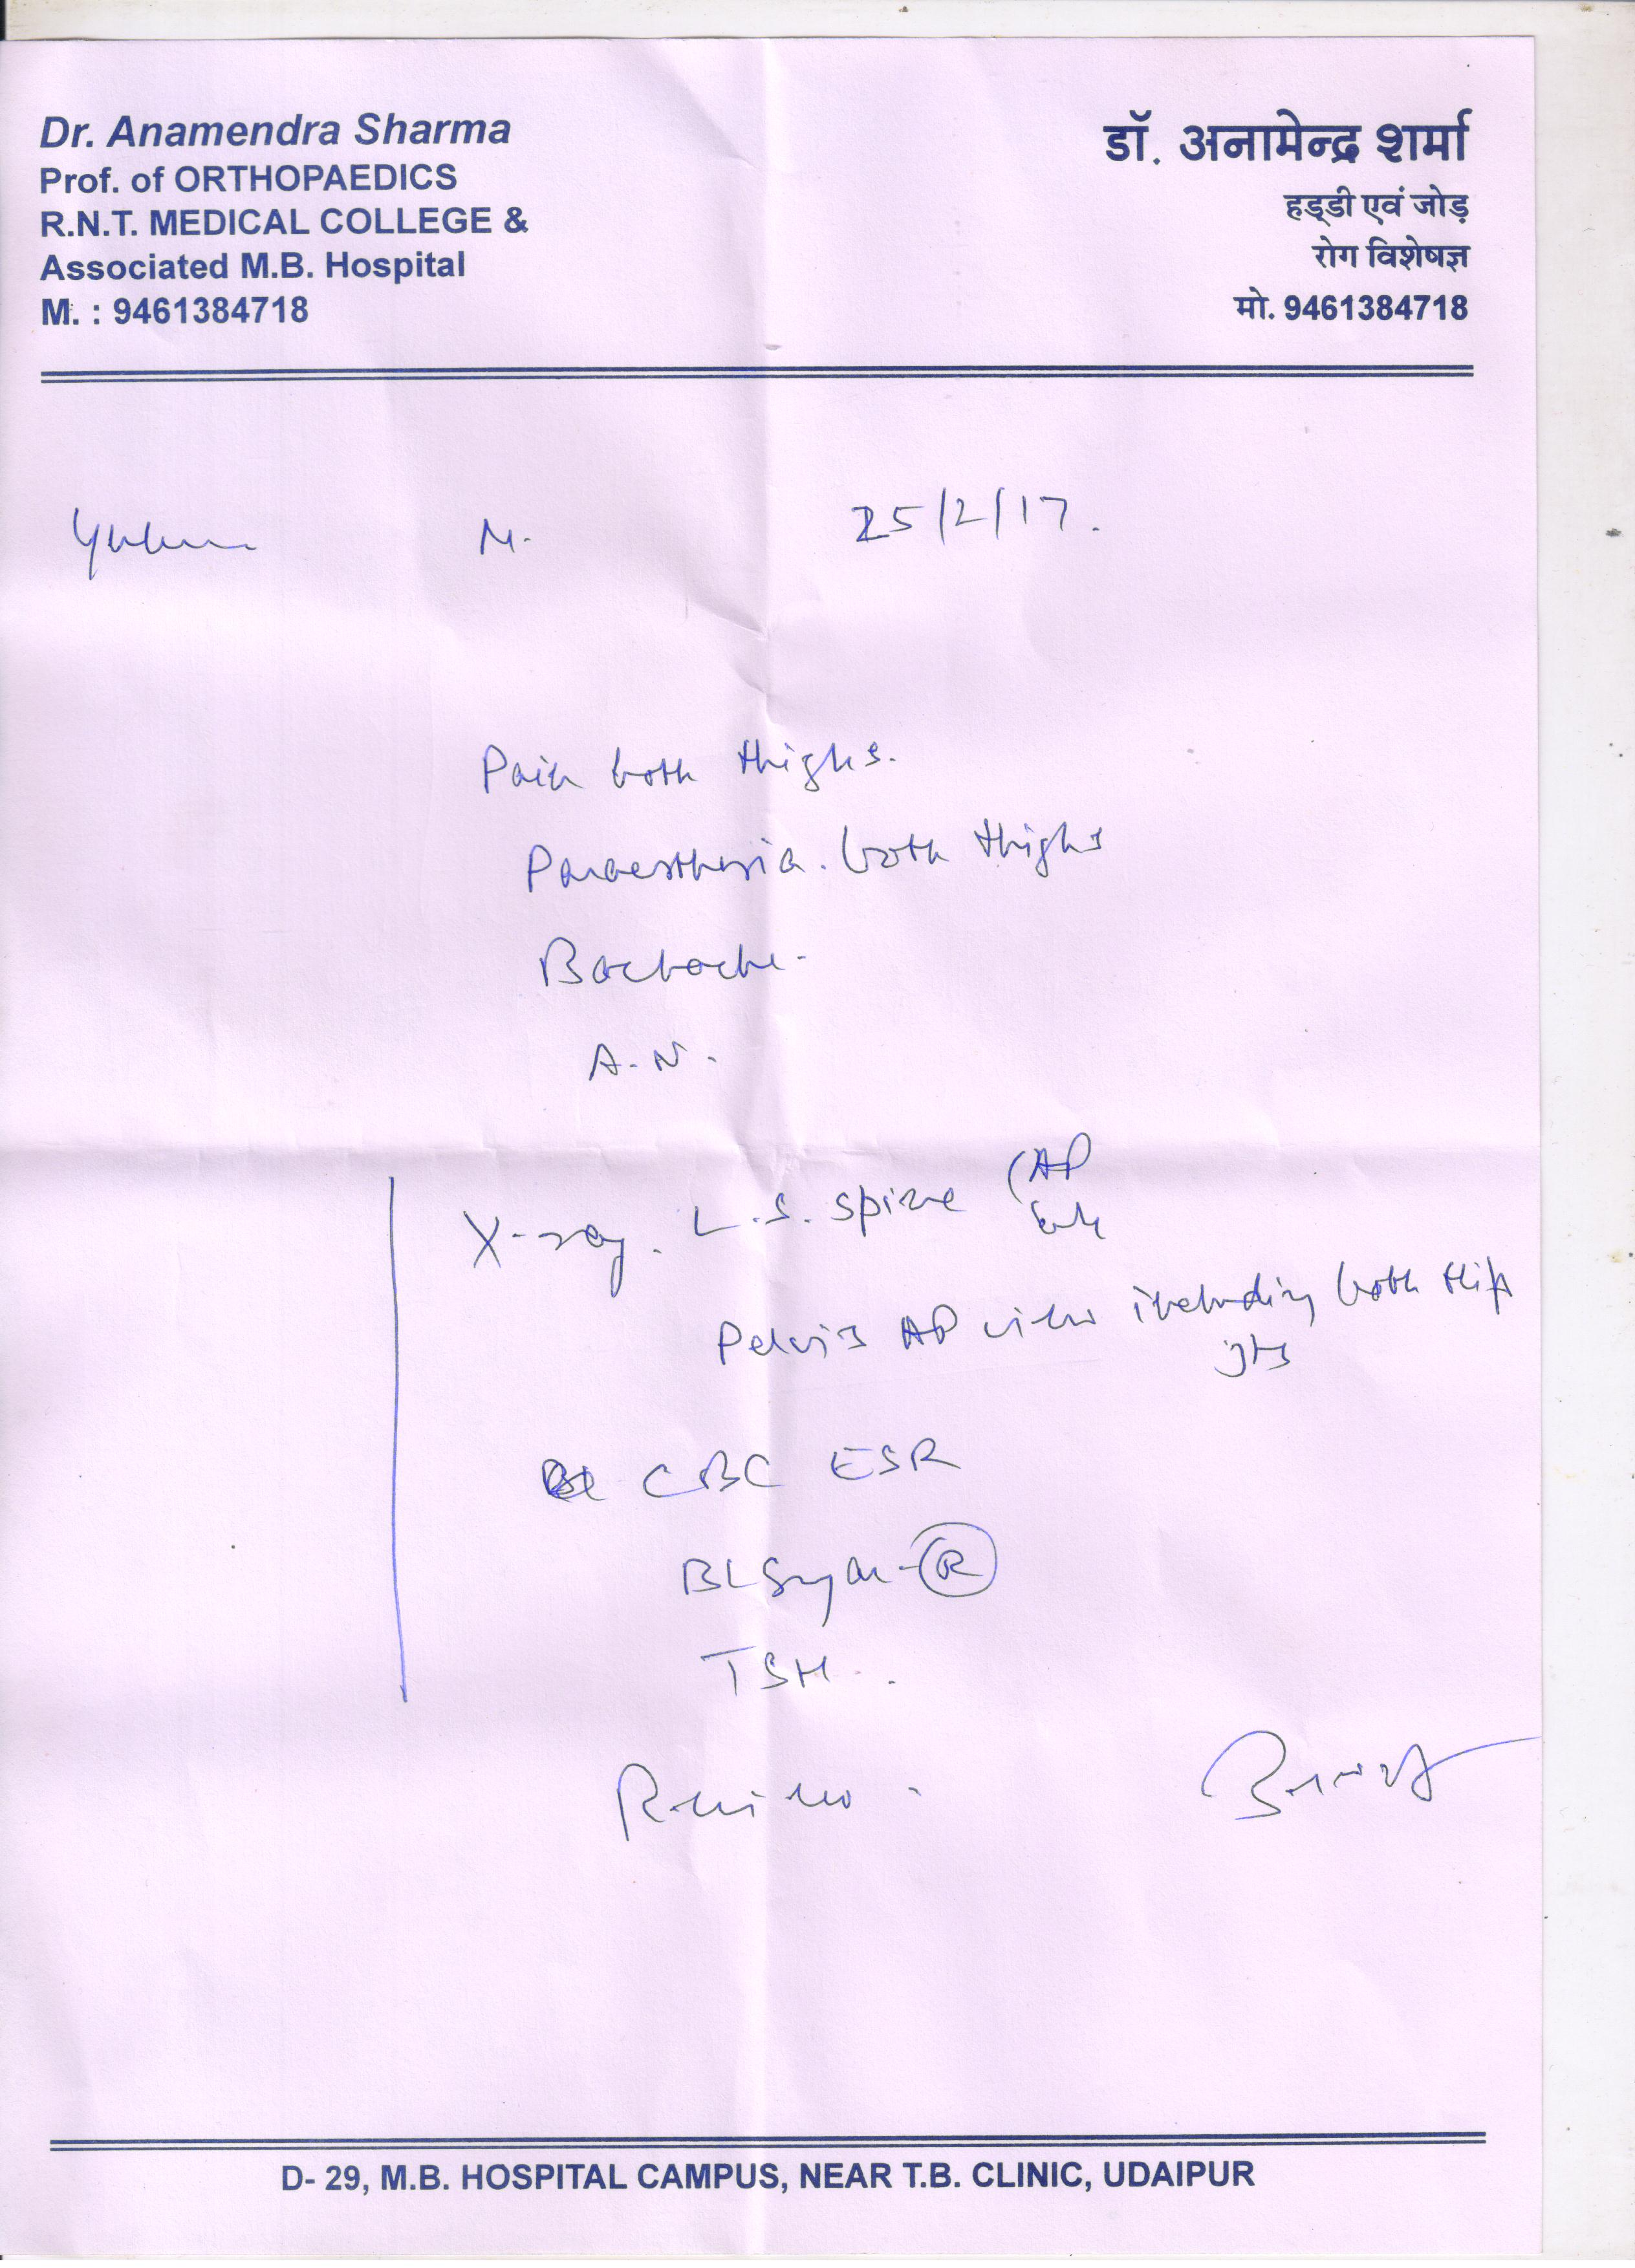 Dr. Anamendra Sharma
Prof. of ORTHOPAEDICS
R.N.T. MEDICAL COLLEGE &
Associated M.B. Hospital
M. : 9461384718
डॉ. अनामेन्द्र शर्मा
हड्डी एवं जोड़
रोग विशेषज्ञ
मो. 9461384718
M. 25/2/17.
Pain both thighs.
Paraesthesia. both thighs
Backache.
A.N.
X-ray. L.S. spine (AP
Pelvis AP view including both Hip
jts
CBC ESR
BL Sugar-R
TSH
Review.
D- 29, M.B. HOSPITAL CAMPUS, NEAR T.B. CLINIC, UDAIPUR